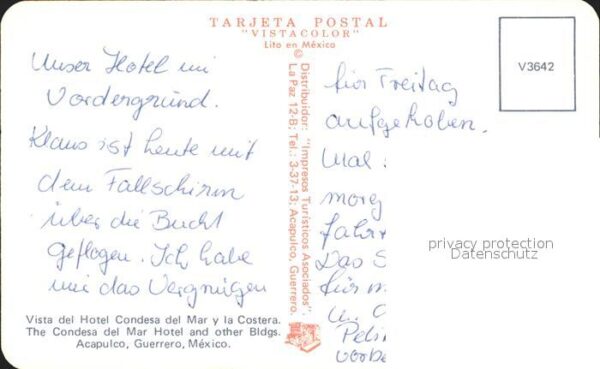 TARJETA POSTAL
"VISTACOLOR"
Lito en México
©
Distribuidor: "Impresos Turísticos Asociados".
La Paz 12-B; Tel.: 3-37-13; Acapulco, Guerrero.
V3642
Unser Hotel im
Vordergrund.
Klaus ist heute mit
dem Fallschirm
über die Bucht
geflogen. Ich habe
mir das Vergnügen
für Freitag
aufgehoben.
Mal
morg
fahr
Das S
für m
vorbe
privacy protection
Datenschutz
Vista del Hotel Condesa del Mar y la Costera.
The Condesa del Mar Hotel and other Bldgs.
Acapulco, Guerrero, México.